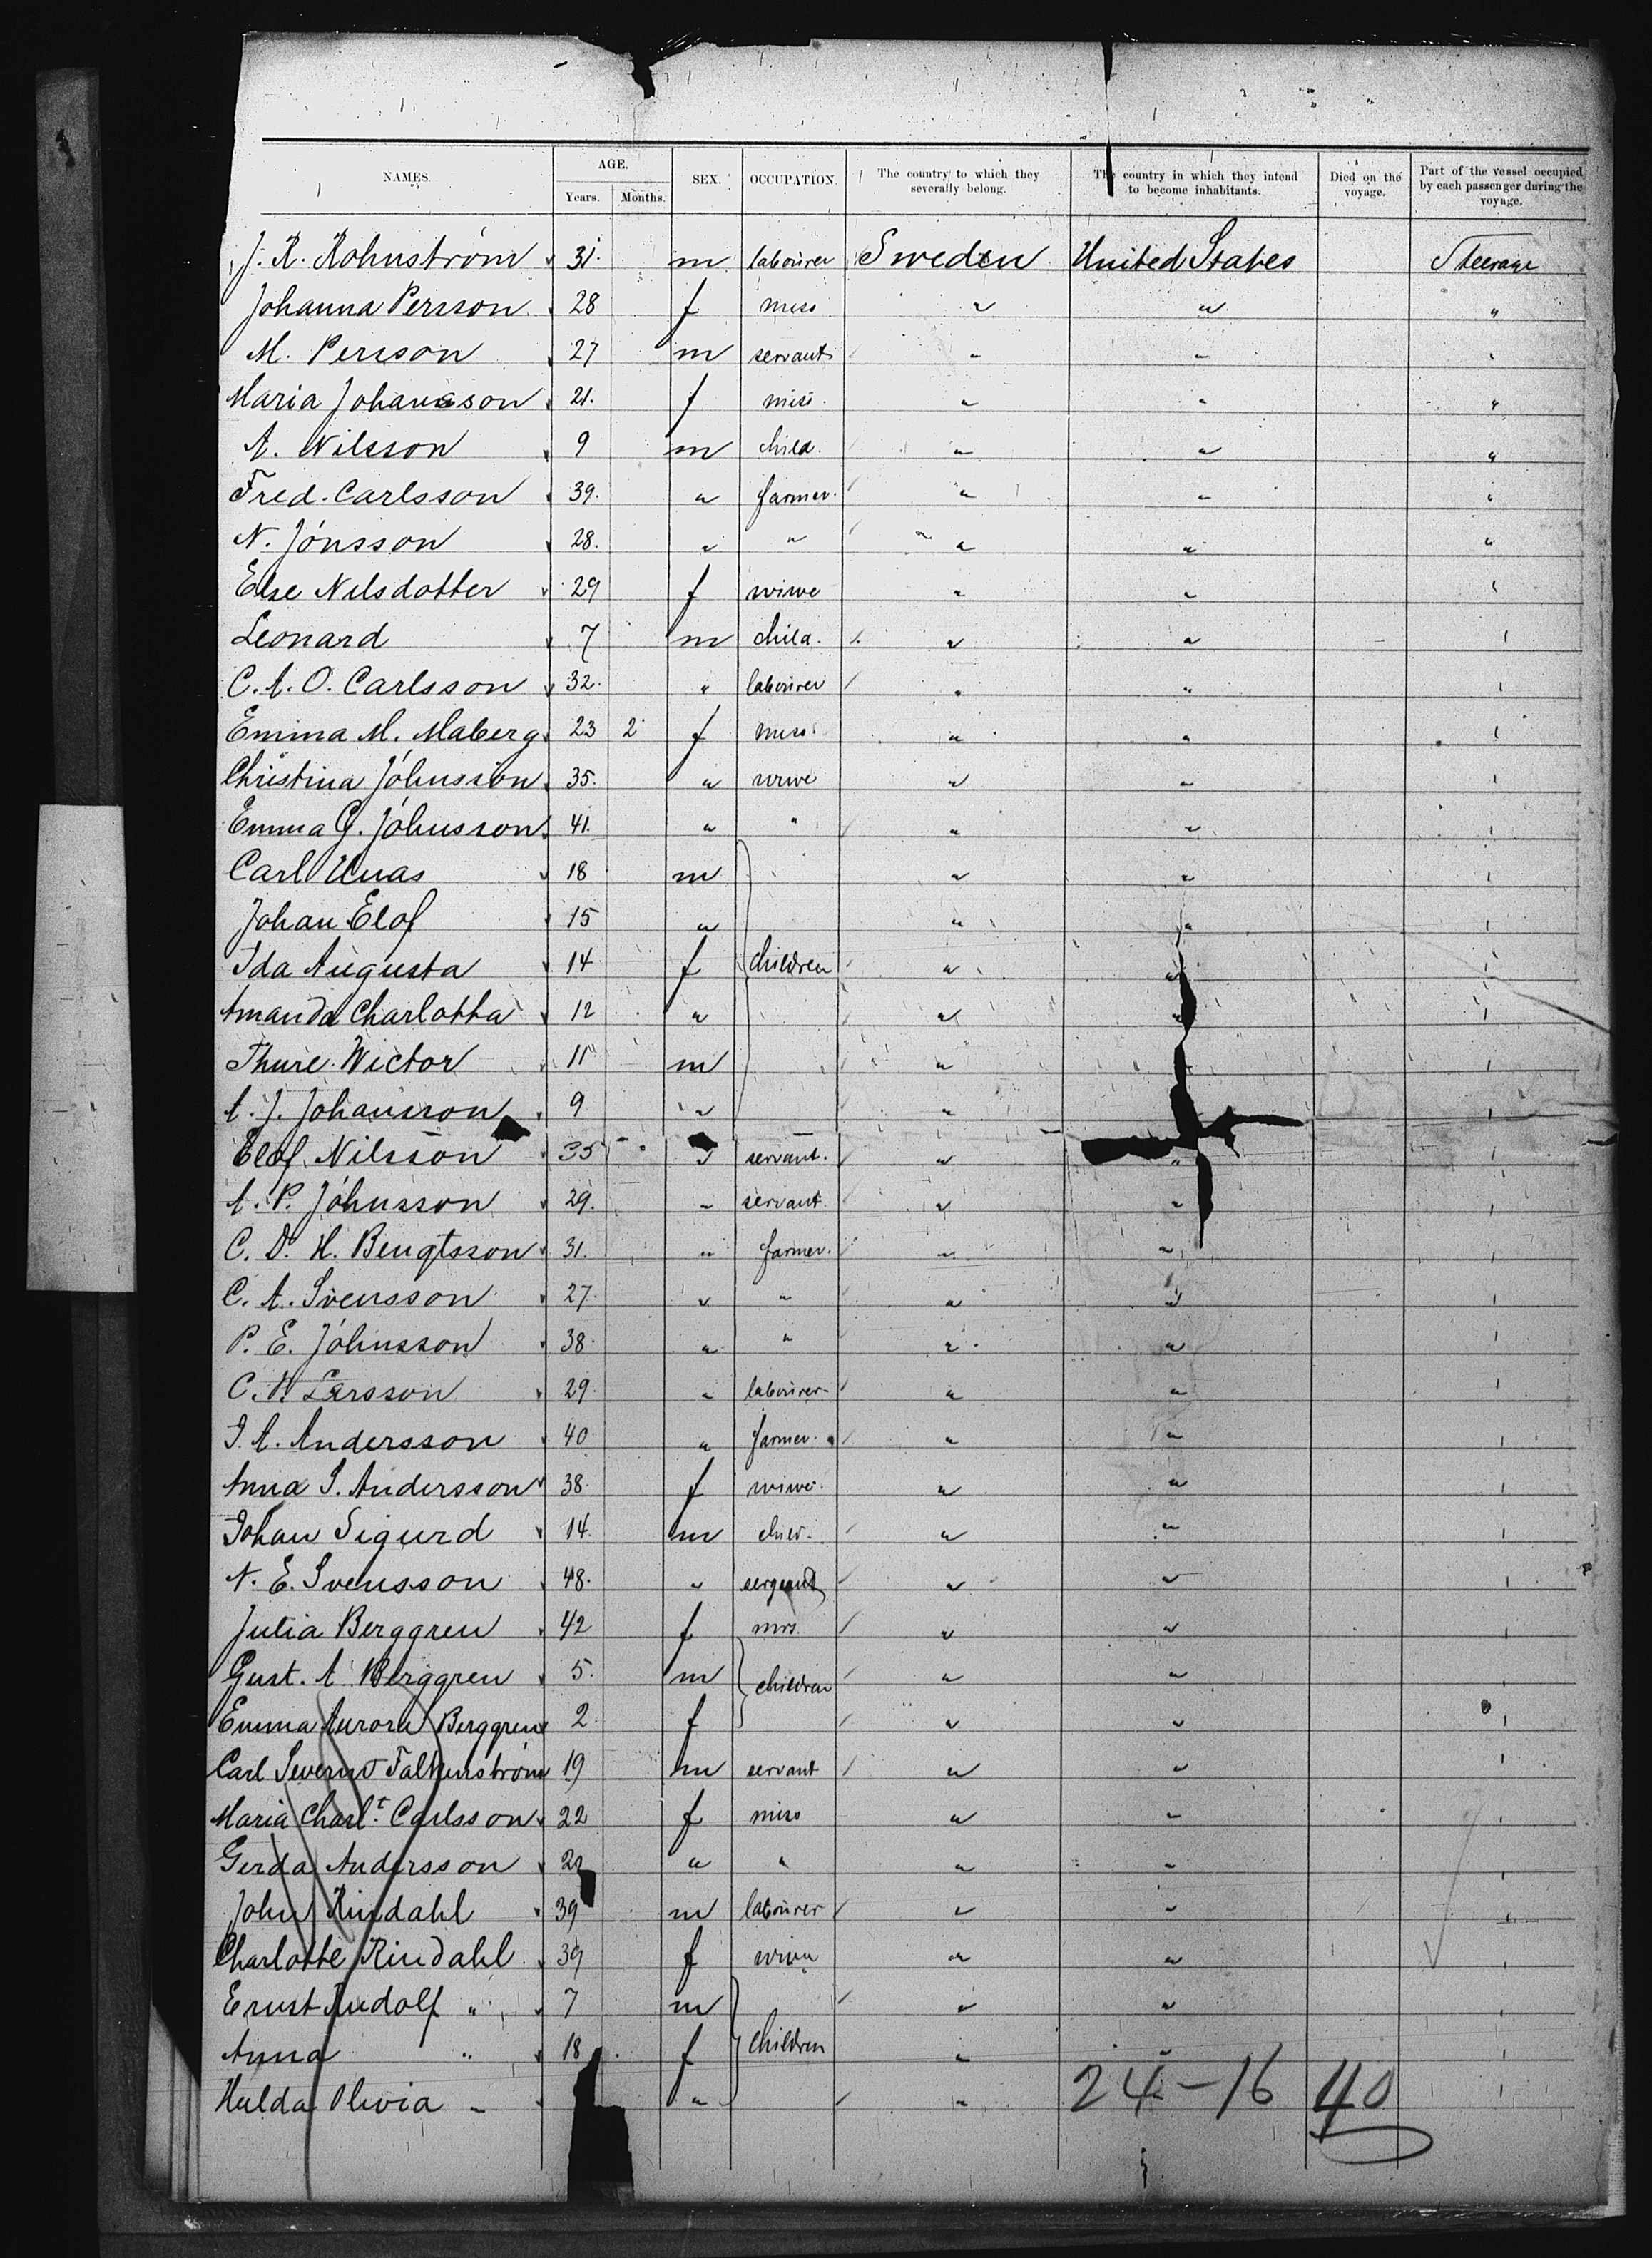 NAMES. AGE. SEX. OCCUPATION. The country to which they severally belong. The country in which they intend to become inhabitants. Died on the voyage. Part of the vessel occupied by each passenger during the voyage.
Years. Months.
J. R. Rohnström 31. m labourer Sweden United States Steerage
Johanna Persson 28 f miss " " "
M. Persson 27 m servant " " "
Maria Johansson 21. f miss " " "
A. Nilsson 9 m child " " "
Fred. Carlsson 39. " farmer. " " "
N. Jónsson 28. " " " " "
Else Nilsdotter 29 f wiwe " " "
Leonard 7 m child. " " "
C. A. O. Carlsson 32. " labourer " " "
Emma M. Maberg 23 2 f miss " " "
Christina Johnsson 35. " wiwe " " "
Emma G. Johnsson 41. " " " " "
Carl Unas 18 m " " "
Johan Elof 15 " " " "
Ida Augusta 14 f children " " "
Amanda Charlotta 12 " " " "
Thure Wictor 11 m " " "
A. J. Johansson 9 " " " "
Elof Nilsson 35 servant. " " "
A. P. Johnsson 29. " servant " " "
C. D. H. Bengtsson 31. " farmer. " " "
C. A. Svensson 27. " " " " "
P. E. Johnsson 38. " " " " "
C. A. Larsson 29. " labourer " " "
J. A. Andersson 40 " farmer. " " "
Anna S. Andersson 38. f wiwe. " " "
Johan Sigurd 14. m child. " " "
N. E. Svensson 48. " sergeant " " "
Julia Berggren 42 f mrs. " " "
Gust. A. Berggren 5. m children " " "
Emma Aurora Berggren 2 f " " "
Carl Severin Falkenström 19 m servant " " "
Maria Charl.t Carlsson 22 f miss " " "
Gerda Andersson " " " " "
John Rindahl 39 m labourer " " "
Charlotte Rindahl 39 f wiwe " " "
Ernst Rudolf " 7 m " " "
Anna " 18 f children " " "
Hulda Olivia " " " 24-16 40 "